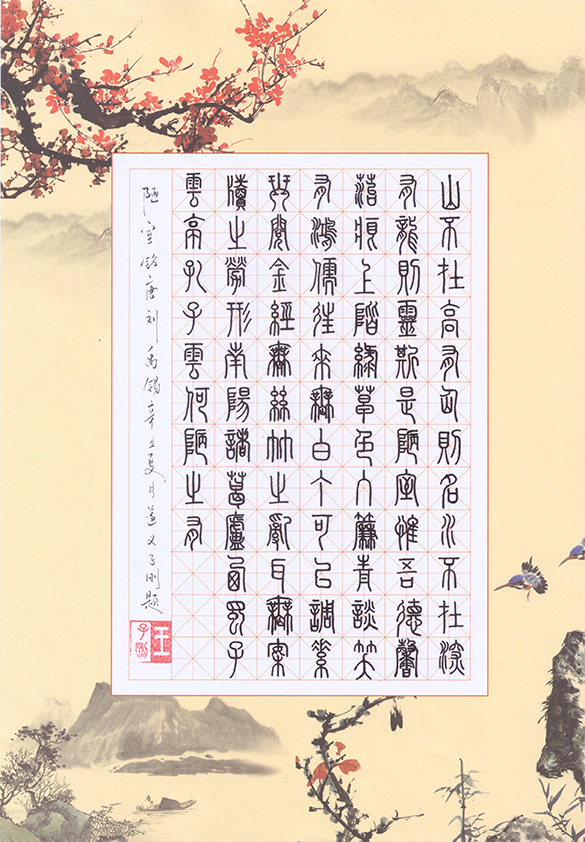 山不在高有仙則名水不在深
有龍則靈斯是陋室惟吾德馨
苔痕上階綠草色入簾青談笑
有鴻儒往來無白丁可以調素
琴閱金經無絲竹之亂耳無案
牘之勞形南陽諸葛廬西蜀子
雲亭孔子雲何陋之有
陋室铭唐刘禹锡辛丑夏月遵义子刚题
王子剛